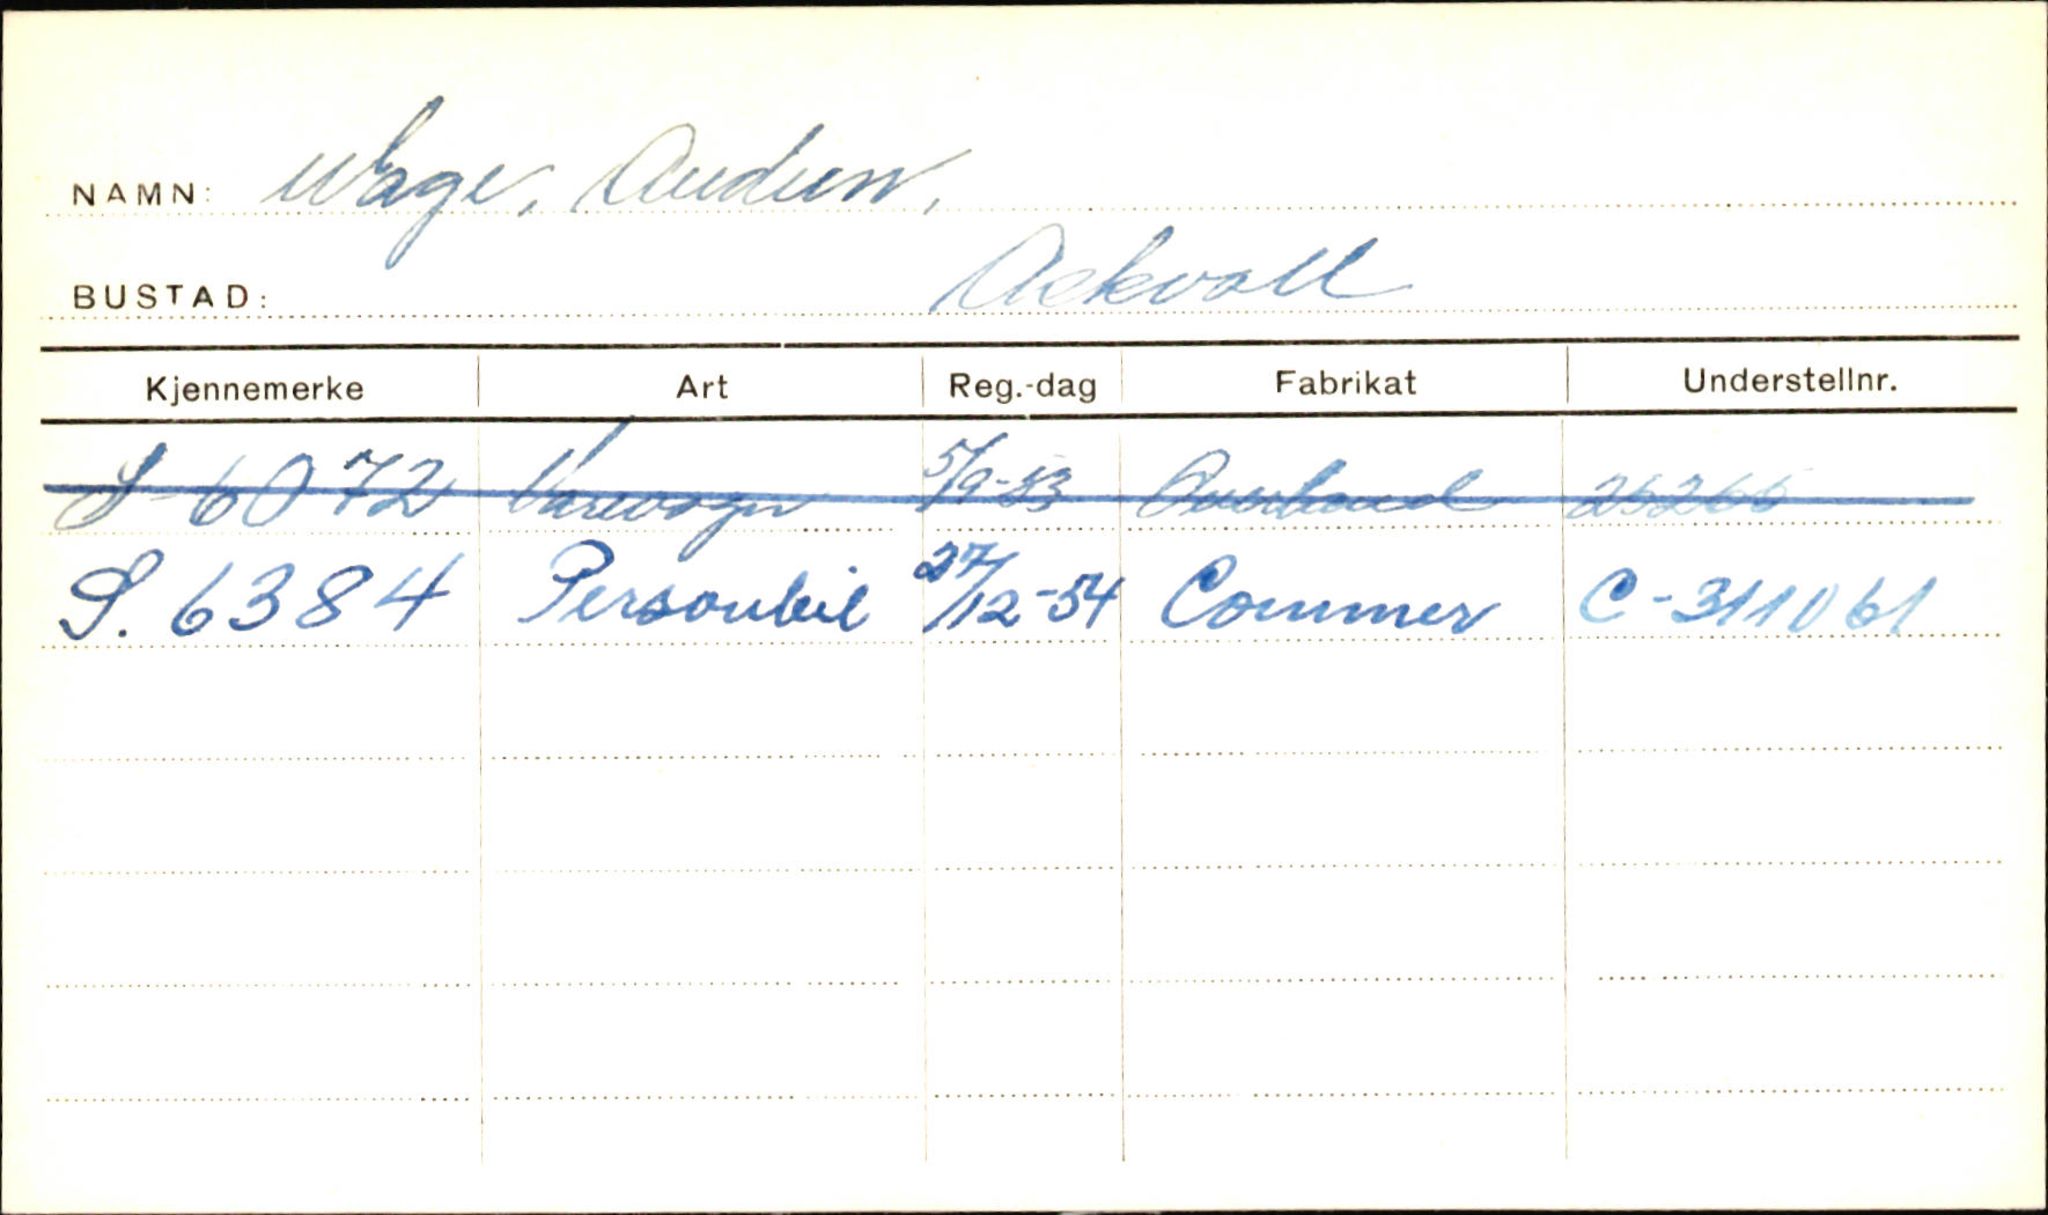 NAMN: Wage, Audun,
BUSTAD: Askvoll
Kjennemerke Art Reg.-dag Fabrikat Understellnr.
S-6072 Varevogn 5/9-53 Overland 25266
S. 6384 Personbil 27/12-54 Commer C-311061